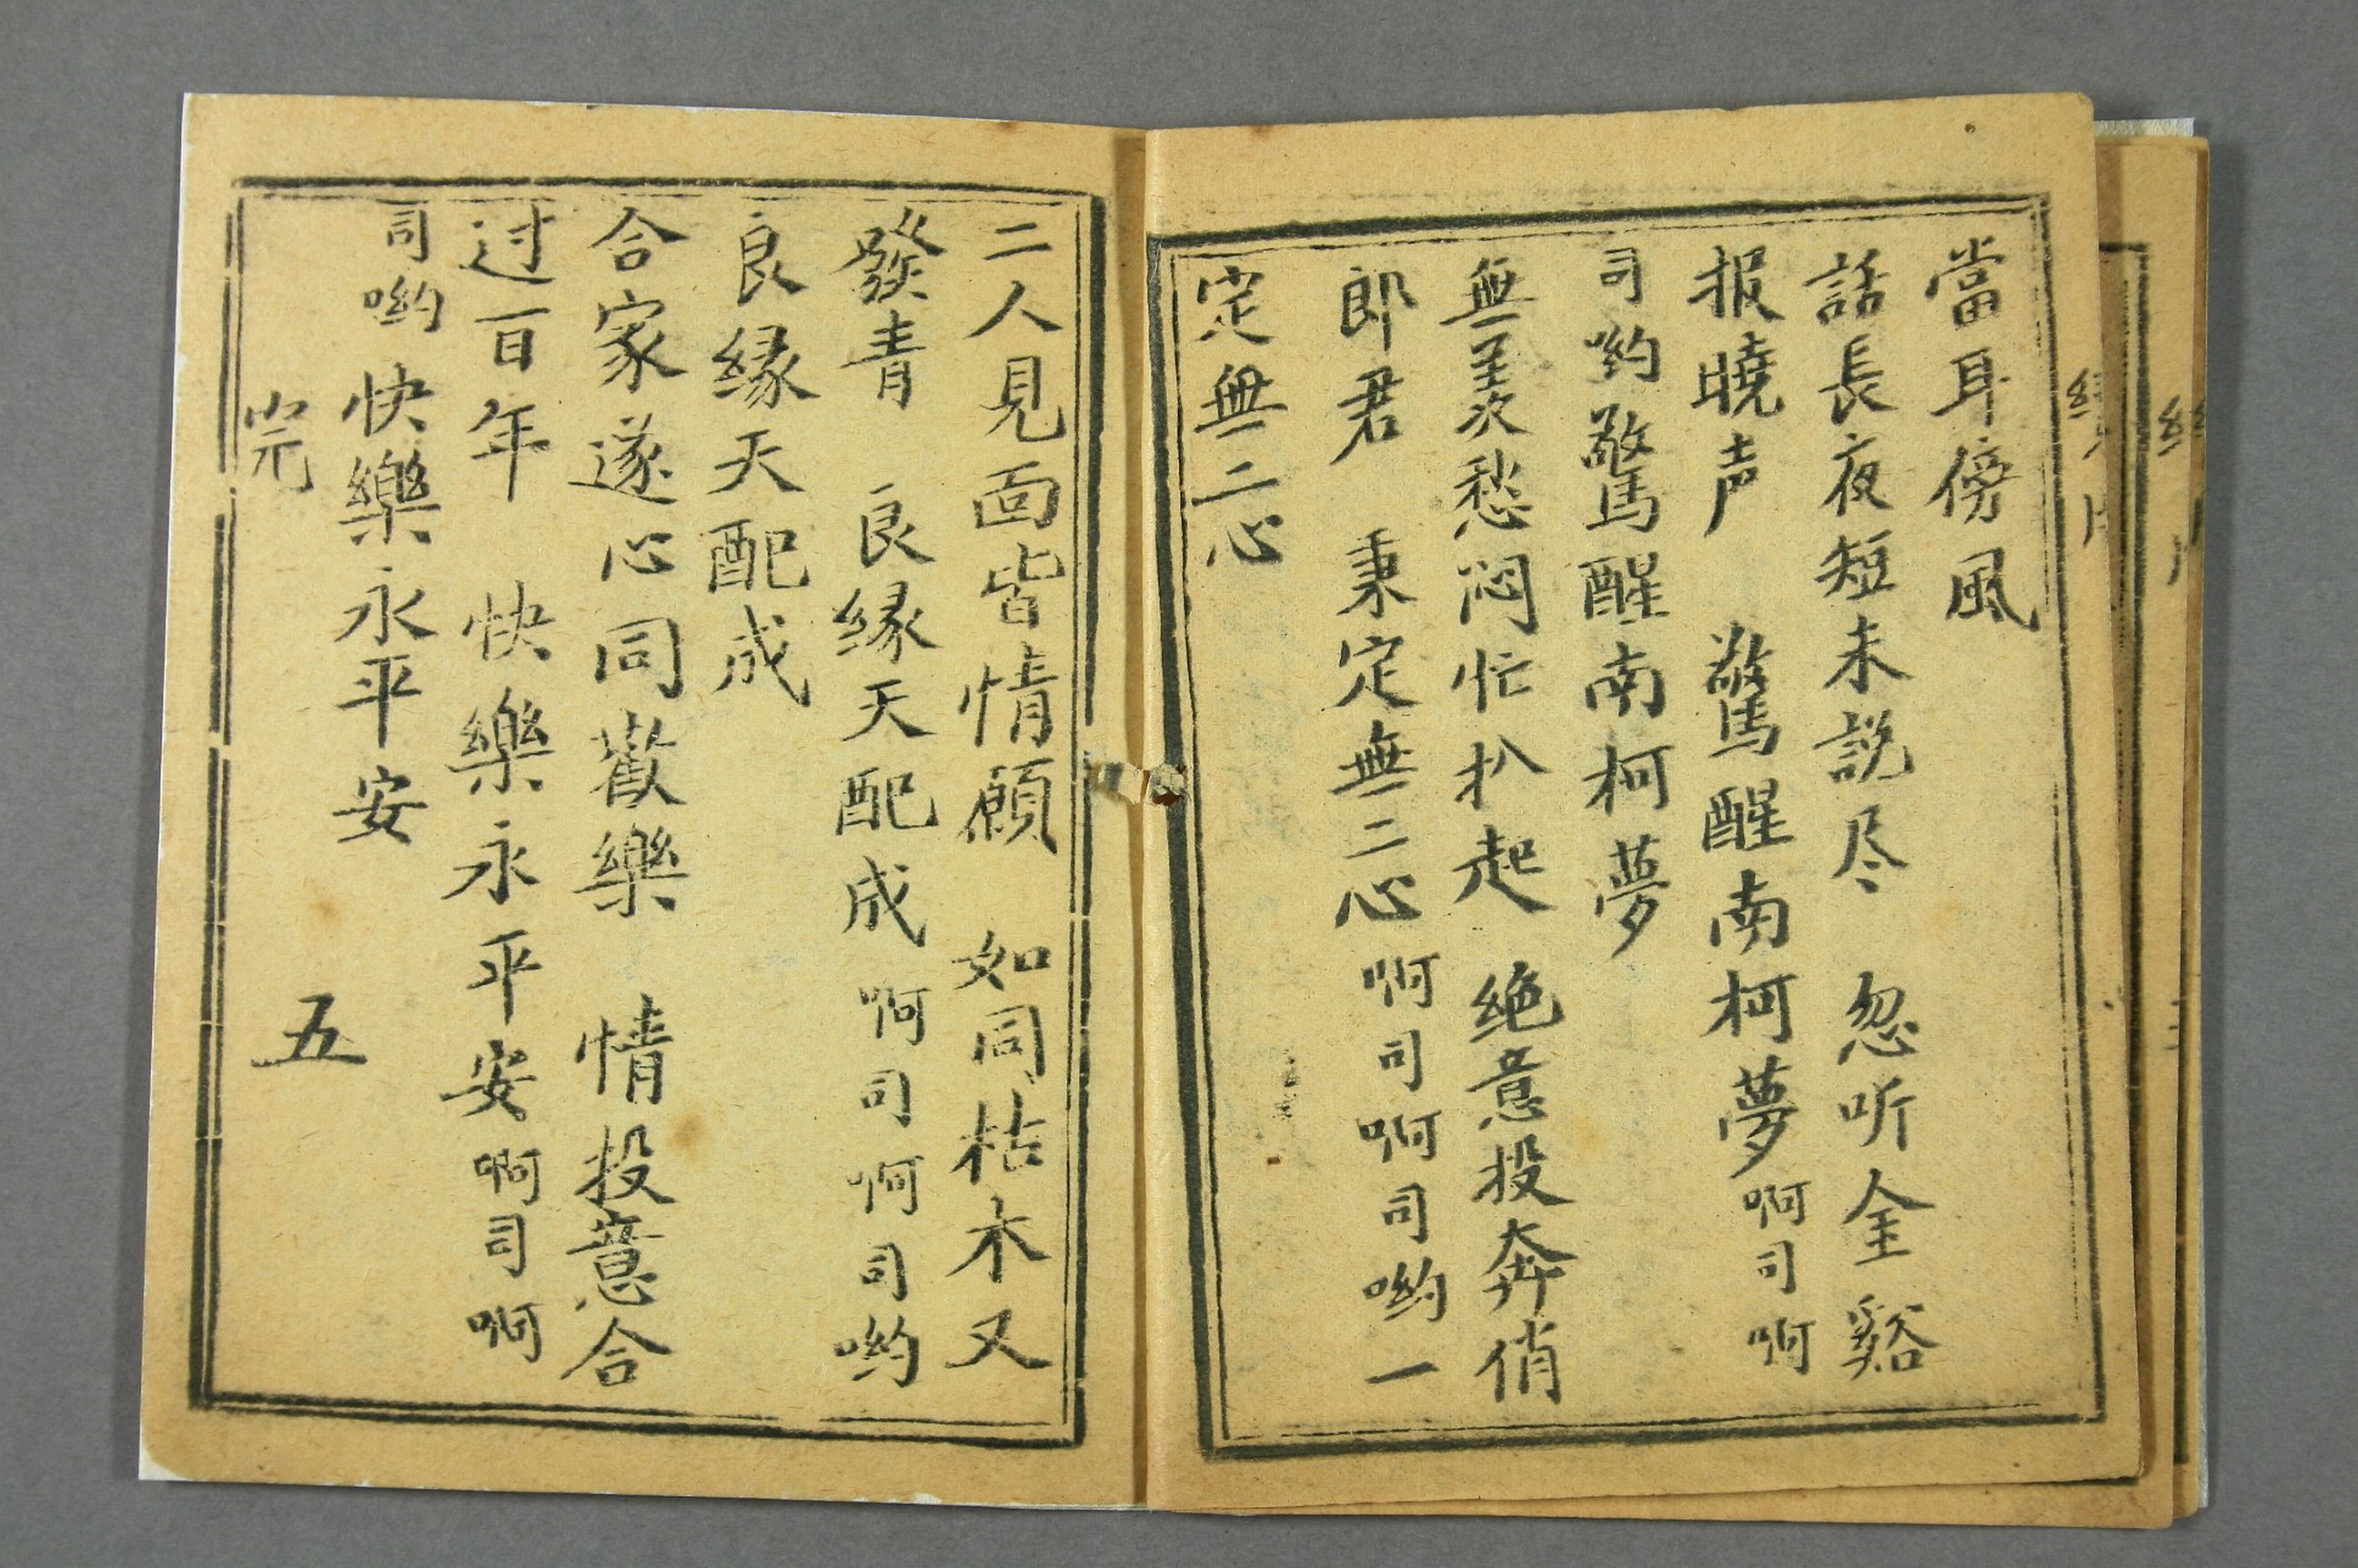 當耳傍風
話長夜短未説尽　忽听金谿
报曉声　驚醒南柯夢啊司啊
司喲驚醒南柯夢
無至次愁悶忙扒起　绝意投奔俏
郎君　秉定無二心啊司啊司喲一
定無二心
二人見面皆情願　如同枯木又
發青　良縁天配成啊司啊司喲
良縁天配成
合家遂心同歡樂　情投意合
过百年　快樂永平安啊司啊
司喲快樂永平安
完　五